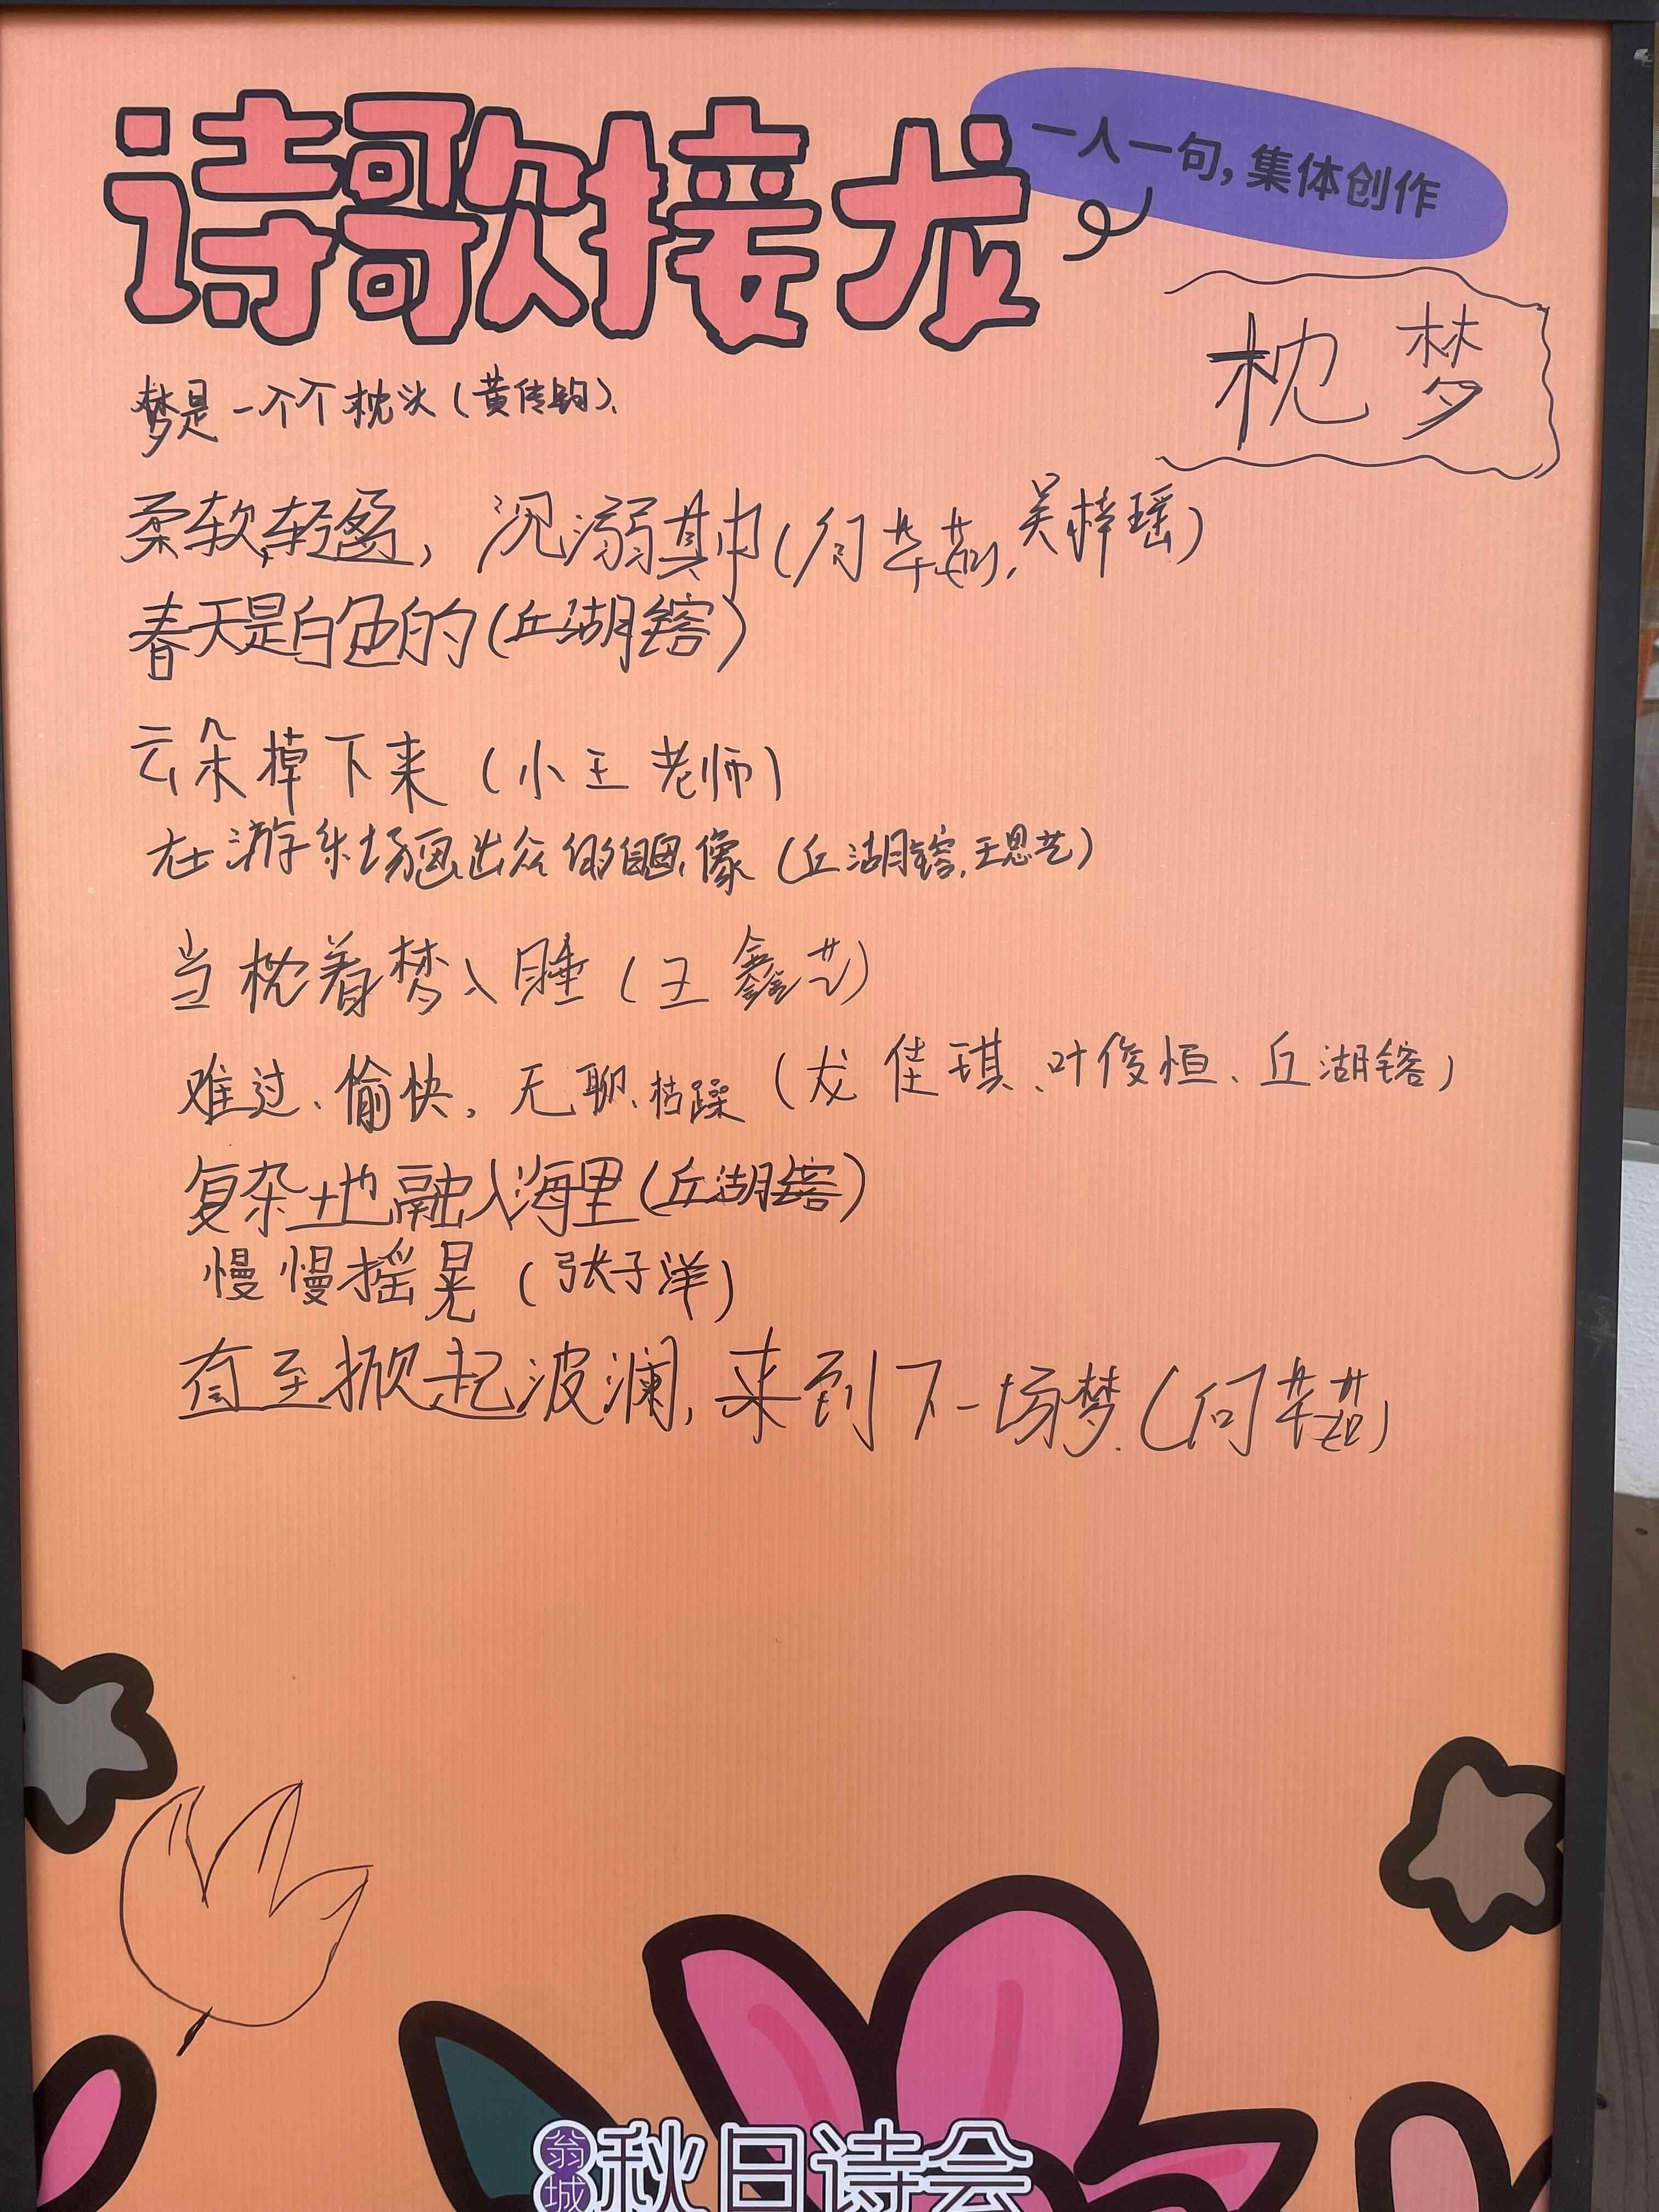 诗歌接龙
一人一句，集体创作
枕梦
梦是一个个枕头（黄传钧）、
柔软,轻盈，沉溺其中（何芊茹，吴梓瑶）
春天是白色的（丘湖镕）
云朵掉下来（小王老师）
在游乐场画出众多的自画像（丘湖镕，王思艺）
当枕着梦入睡（王鑫艺）
难过、愉快。无聊、枯躁（龙佳琪、叶俊恒、丘湖镕）
复杂土地融入海里（丘湖镕）
慢慢摇晃（张子洋）
直至掀起波澜,来到下一场梦.（何芊茹）
翁城
秋日诗会